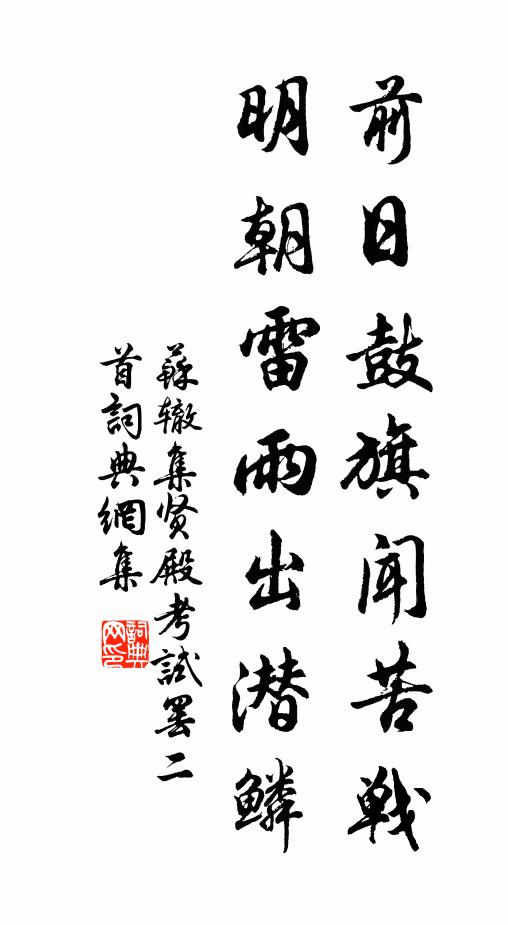 前日鼓旗闻苦战
明朝雷雨出潜鳞
蘇辙集贤殿考試罢二
首詞典網集
詞典
网印